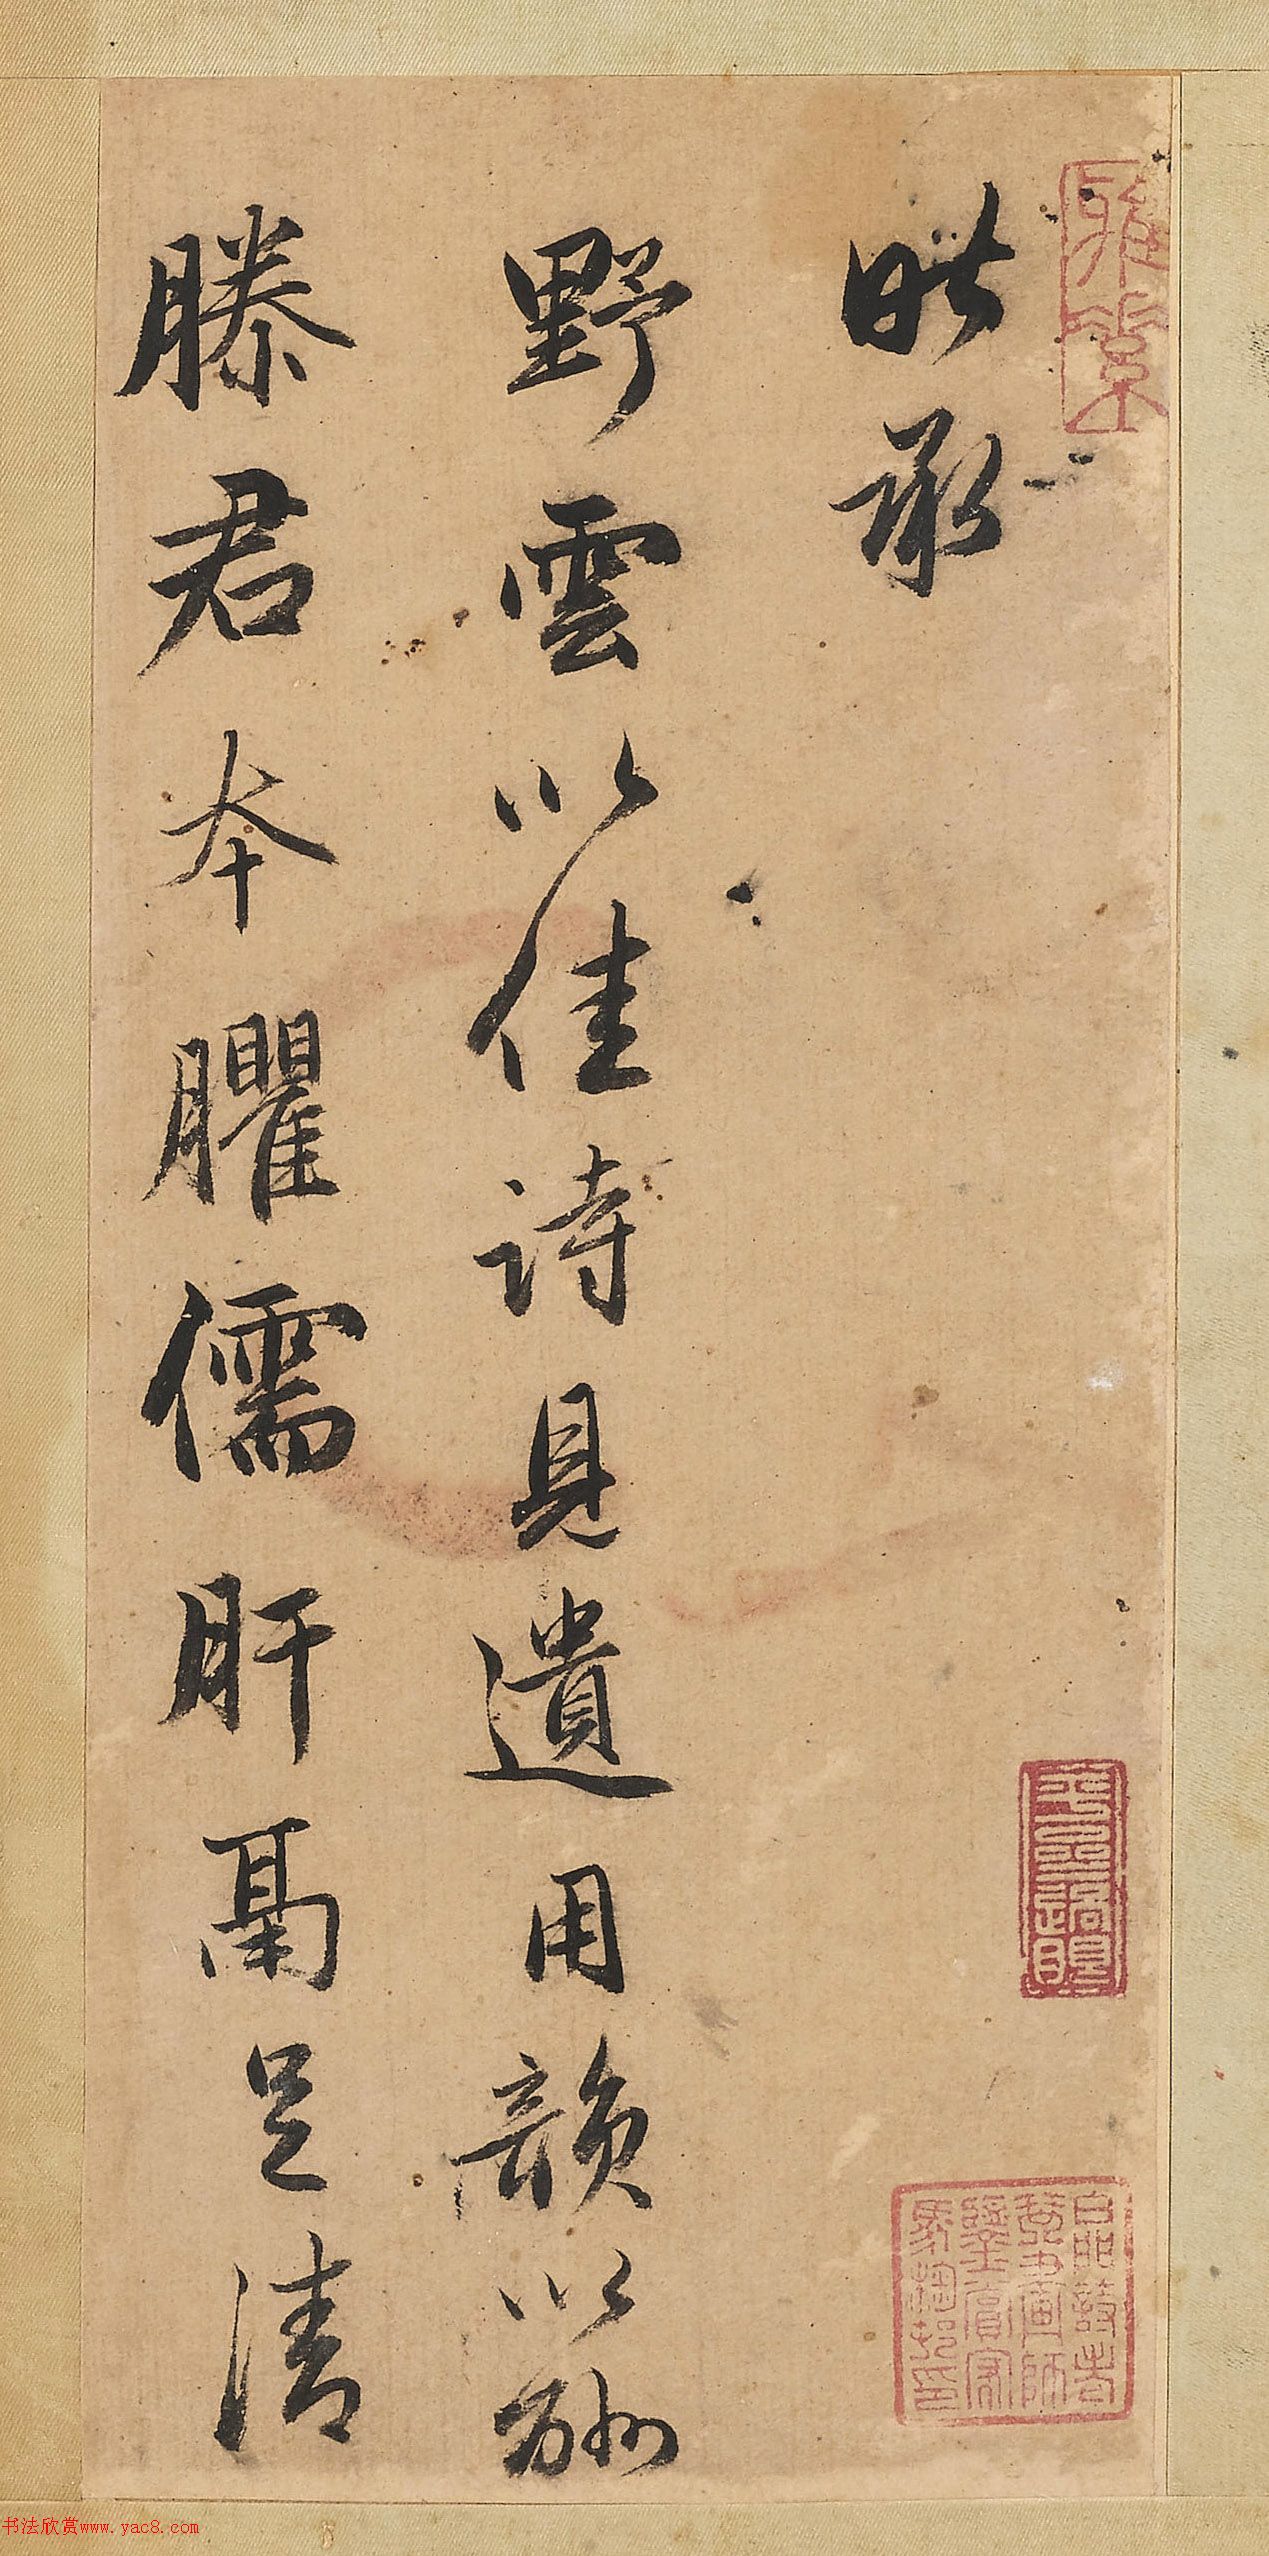 昨承
野雲以佳詩見遺用韻以酬
滕君本臞儒肝鬲足清
書法欣赏www.yac8.com